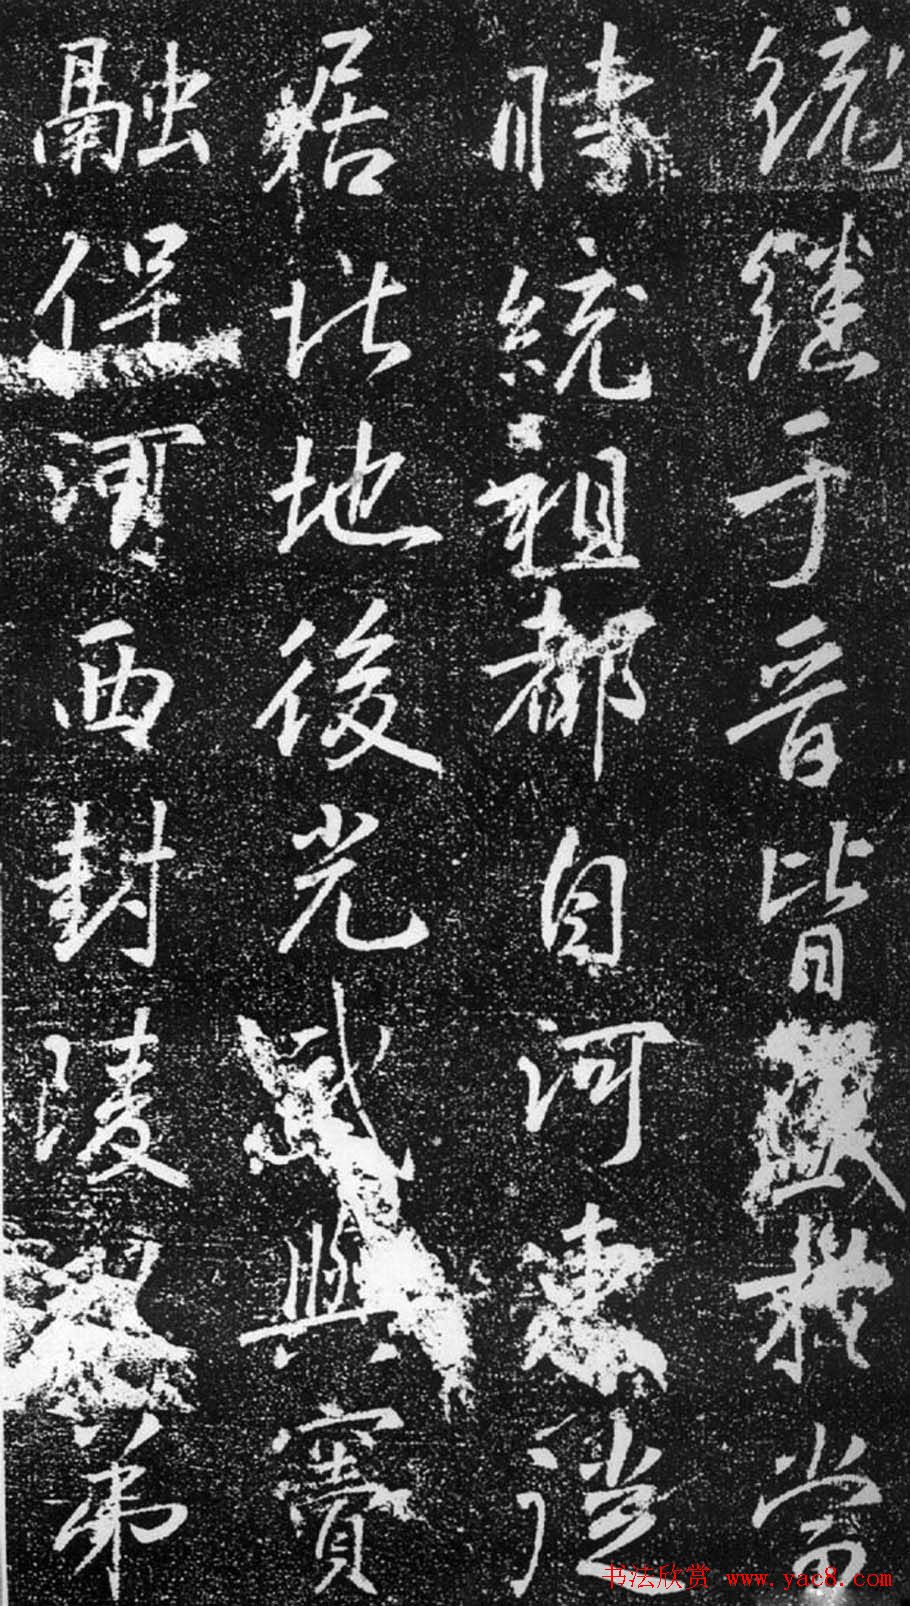 統継于晉皆盛於當
時統祖都自河東
此地後光武與竇
融保河西封陵弟
书法欣赏 www.yac8.com